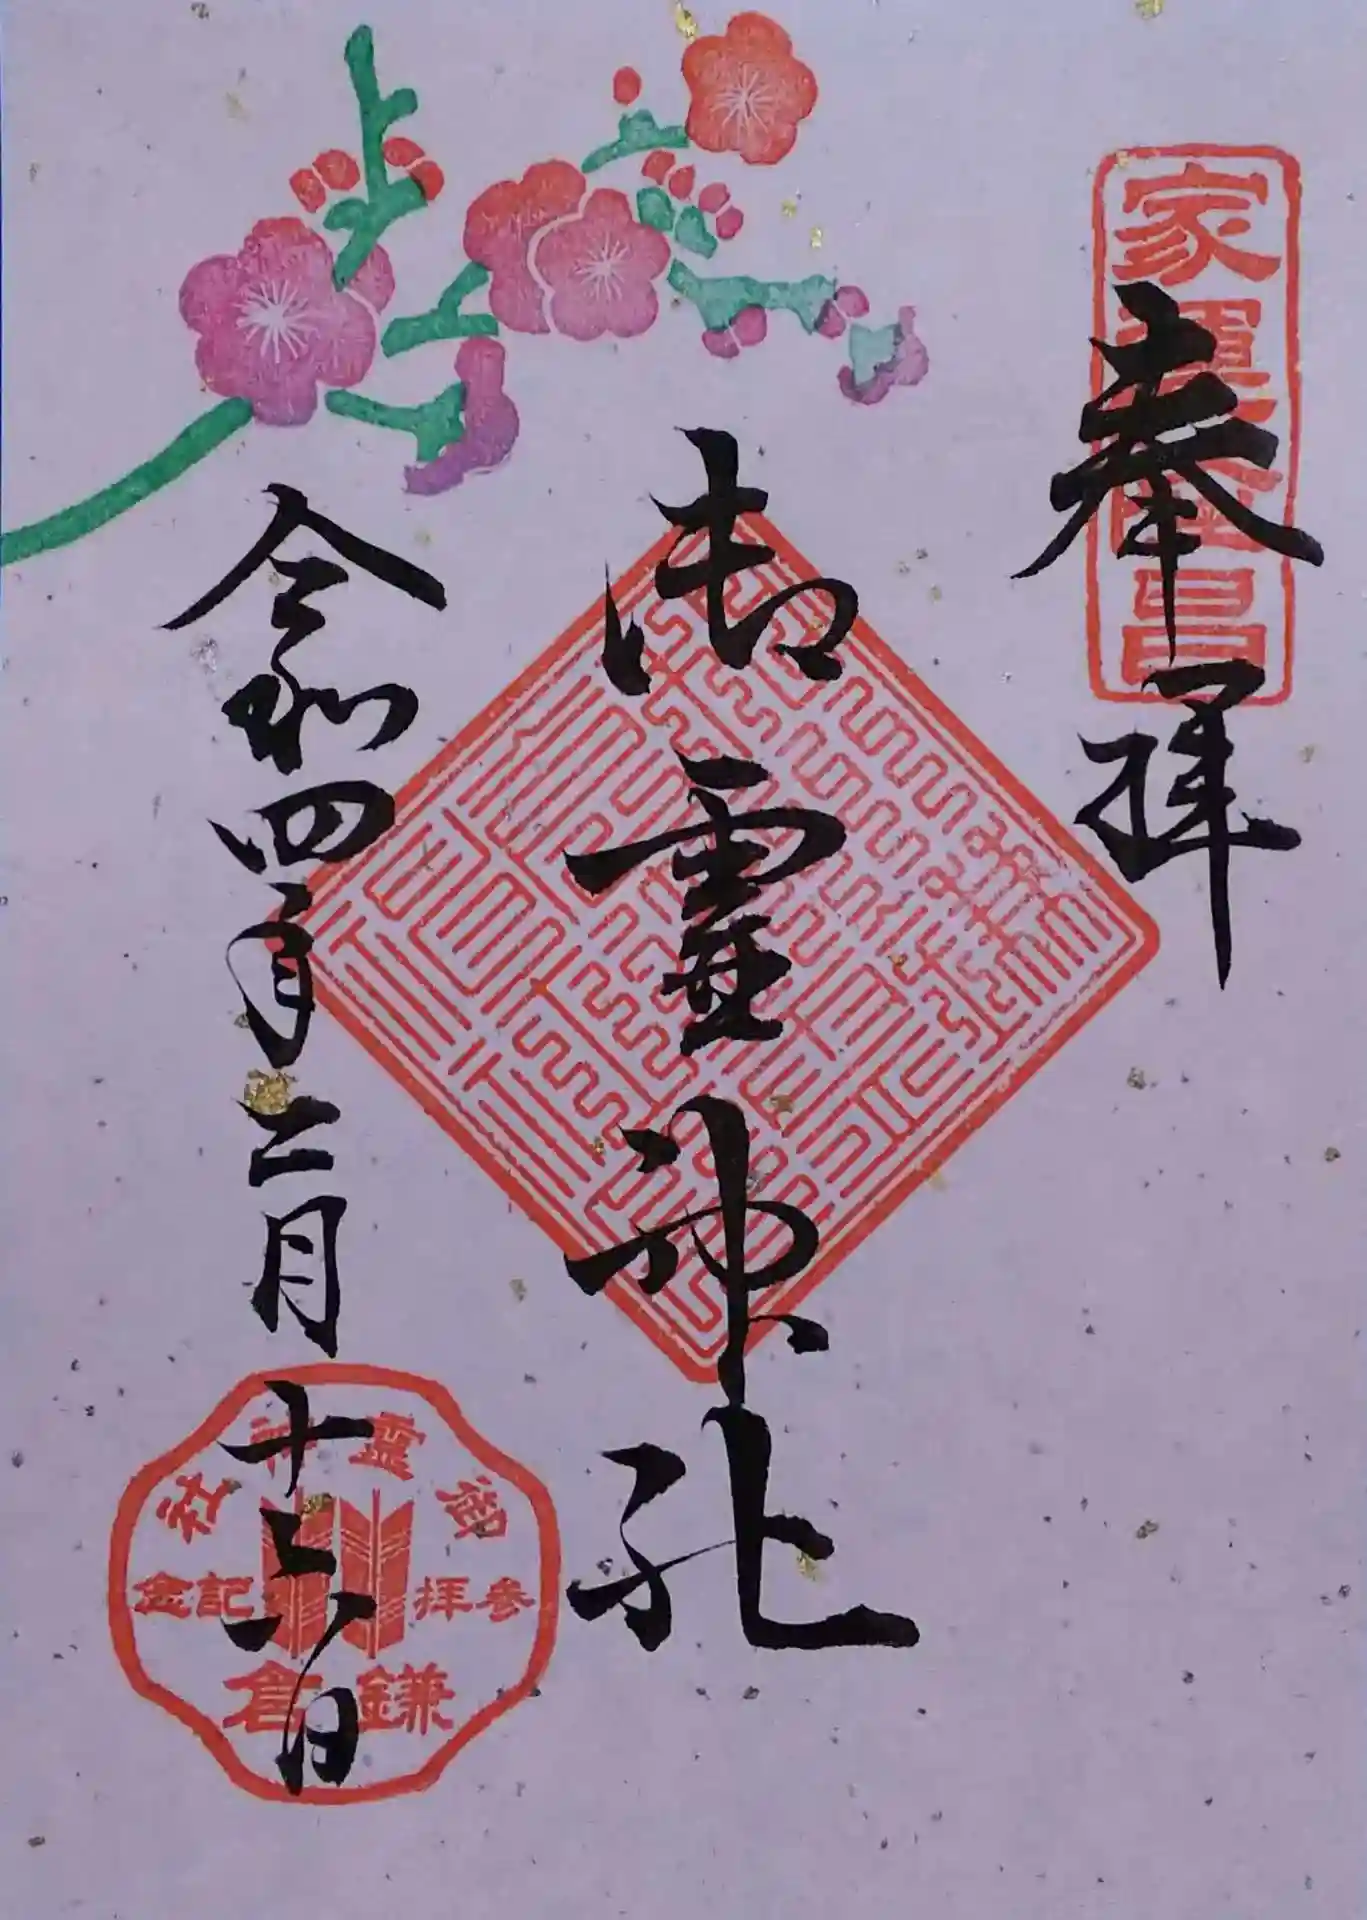 奉拝
家運隆昌
御霊神社
令和四年二月十六日
御霊神社
参拝記念
鎌倉